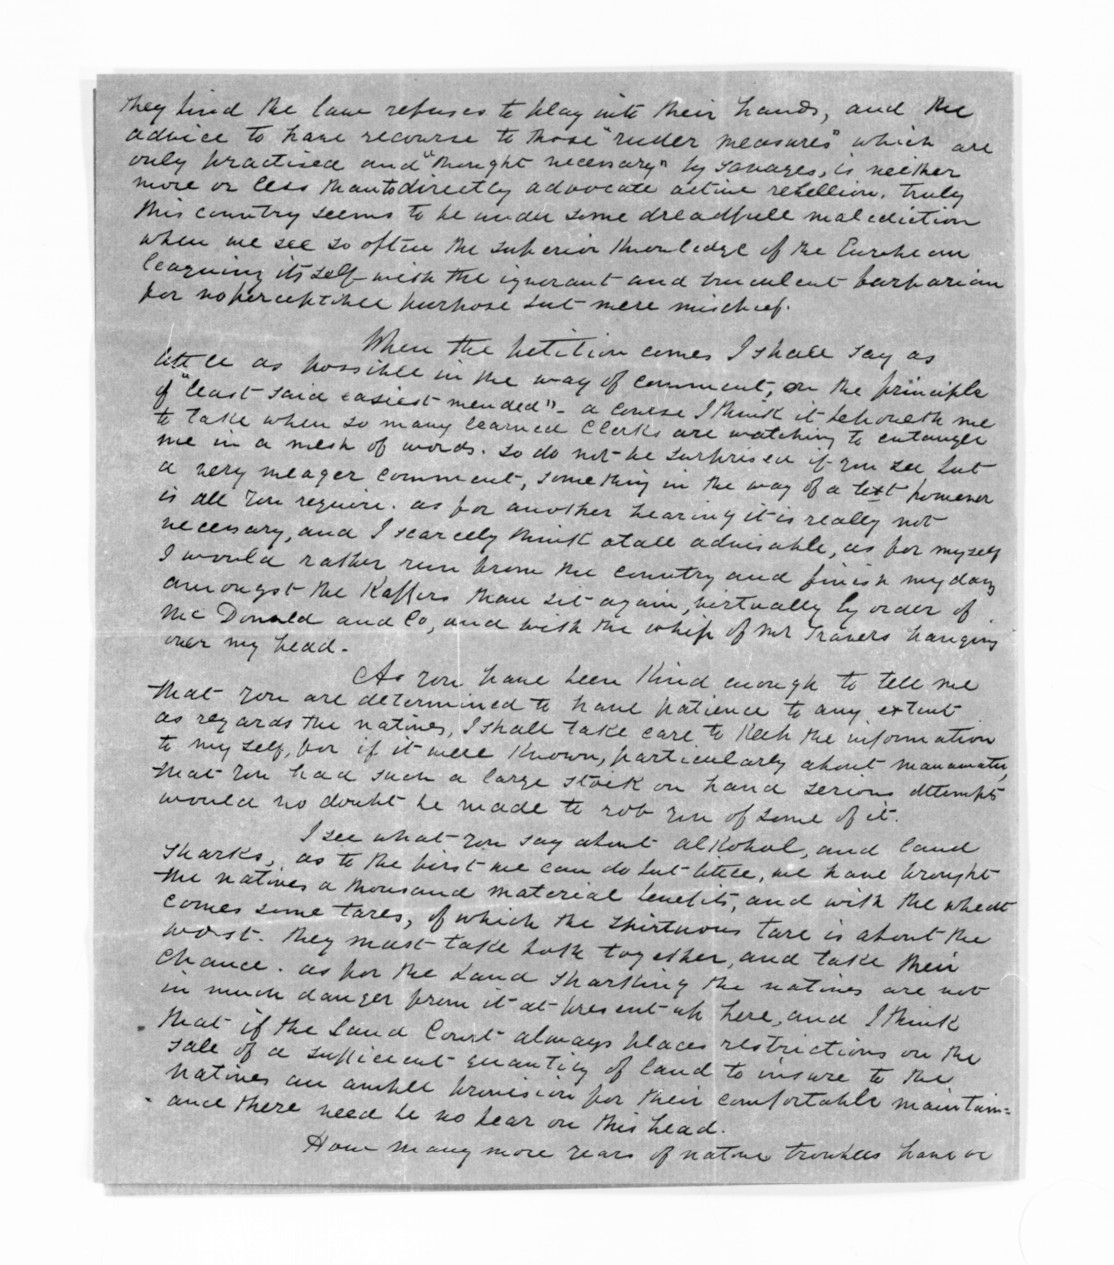 they find the law refuses to play into their hands, and the
advice to have recourse to those "ruder measures" which are
only practised and "thought necessary" by savages, is neither
more or less than to directly advocate active rebellion. truly
this country seems to be under some dreadfull malediction
when we see so often the superior Knowledge of the European
leaguing its self with the ignorant and truculent barbarian
for no perceptible purpose but mere mischief.
When the petition comes I shall say as
little as possible in the way of comment, on the principle
of "least said easiest mended" - a course I think it behoveth me
to take when so many learned Clerks are watching to entangle
me in a mesh of words. So do not be surprised if you see but
a very meager comment, something in the way of a text however
is all you require. as for another hearing it is really not
necessary, and I scarcely think atall advisable, as for myself
I would rather run from the country and finish my days
amongst the Kaffirs than sit again, virtually by order of
Mc Donald and Co, and with the whip of Mr Travers hanging
over my head.
As you have been Kind enough to tell me
that you are determined to have patience to any extent
as regards the natives, I shall take care to Keep the information
to my self, for if it were Known, particularly about manawatu,
that you had such a large stock on hand serious attempts
would no doubt be made to rob you of some of it.
I see what you say about alkohol, and land
sharks, as to the first we can do but little, we have brought
the natives a thousand material benefits, and with the wheat
comes some tares, of which the spirtuous tare is about the
worst. they must take both together, and take their
chance. as for the Land sharking the natives are not
in much danger from it at present up here, and I think
that if the Land Court always places restrictions on the
sale of a sufficent quantity of land to insure to the
natives an ample provision for their comfortable maintain=
ance there need be no fear on this head.
How many more years of native troubles have we